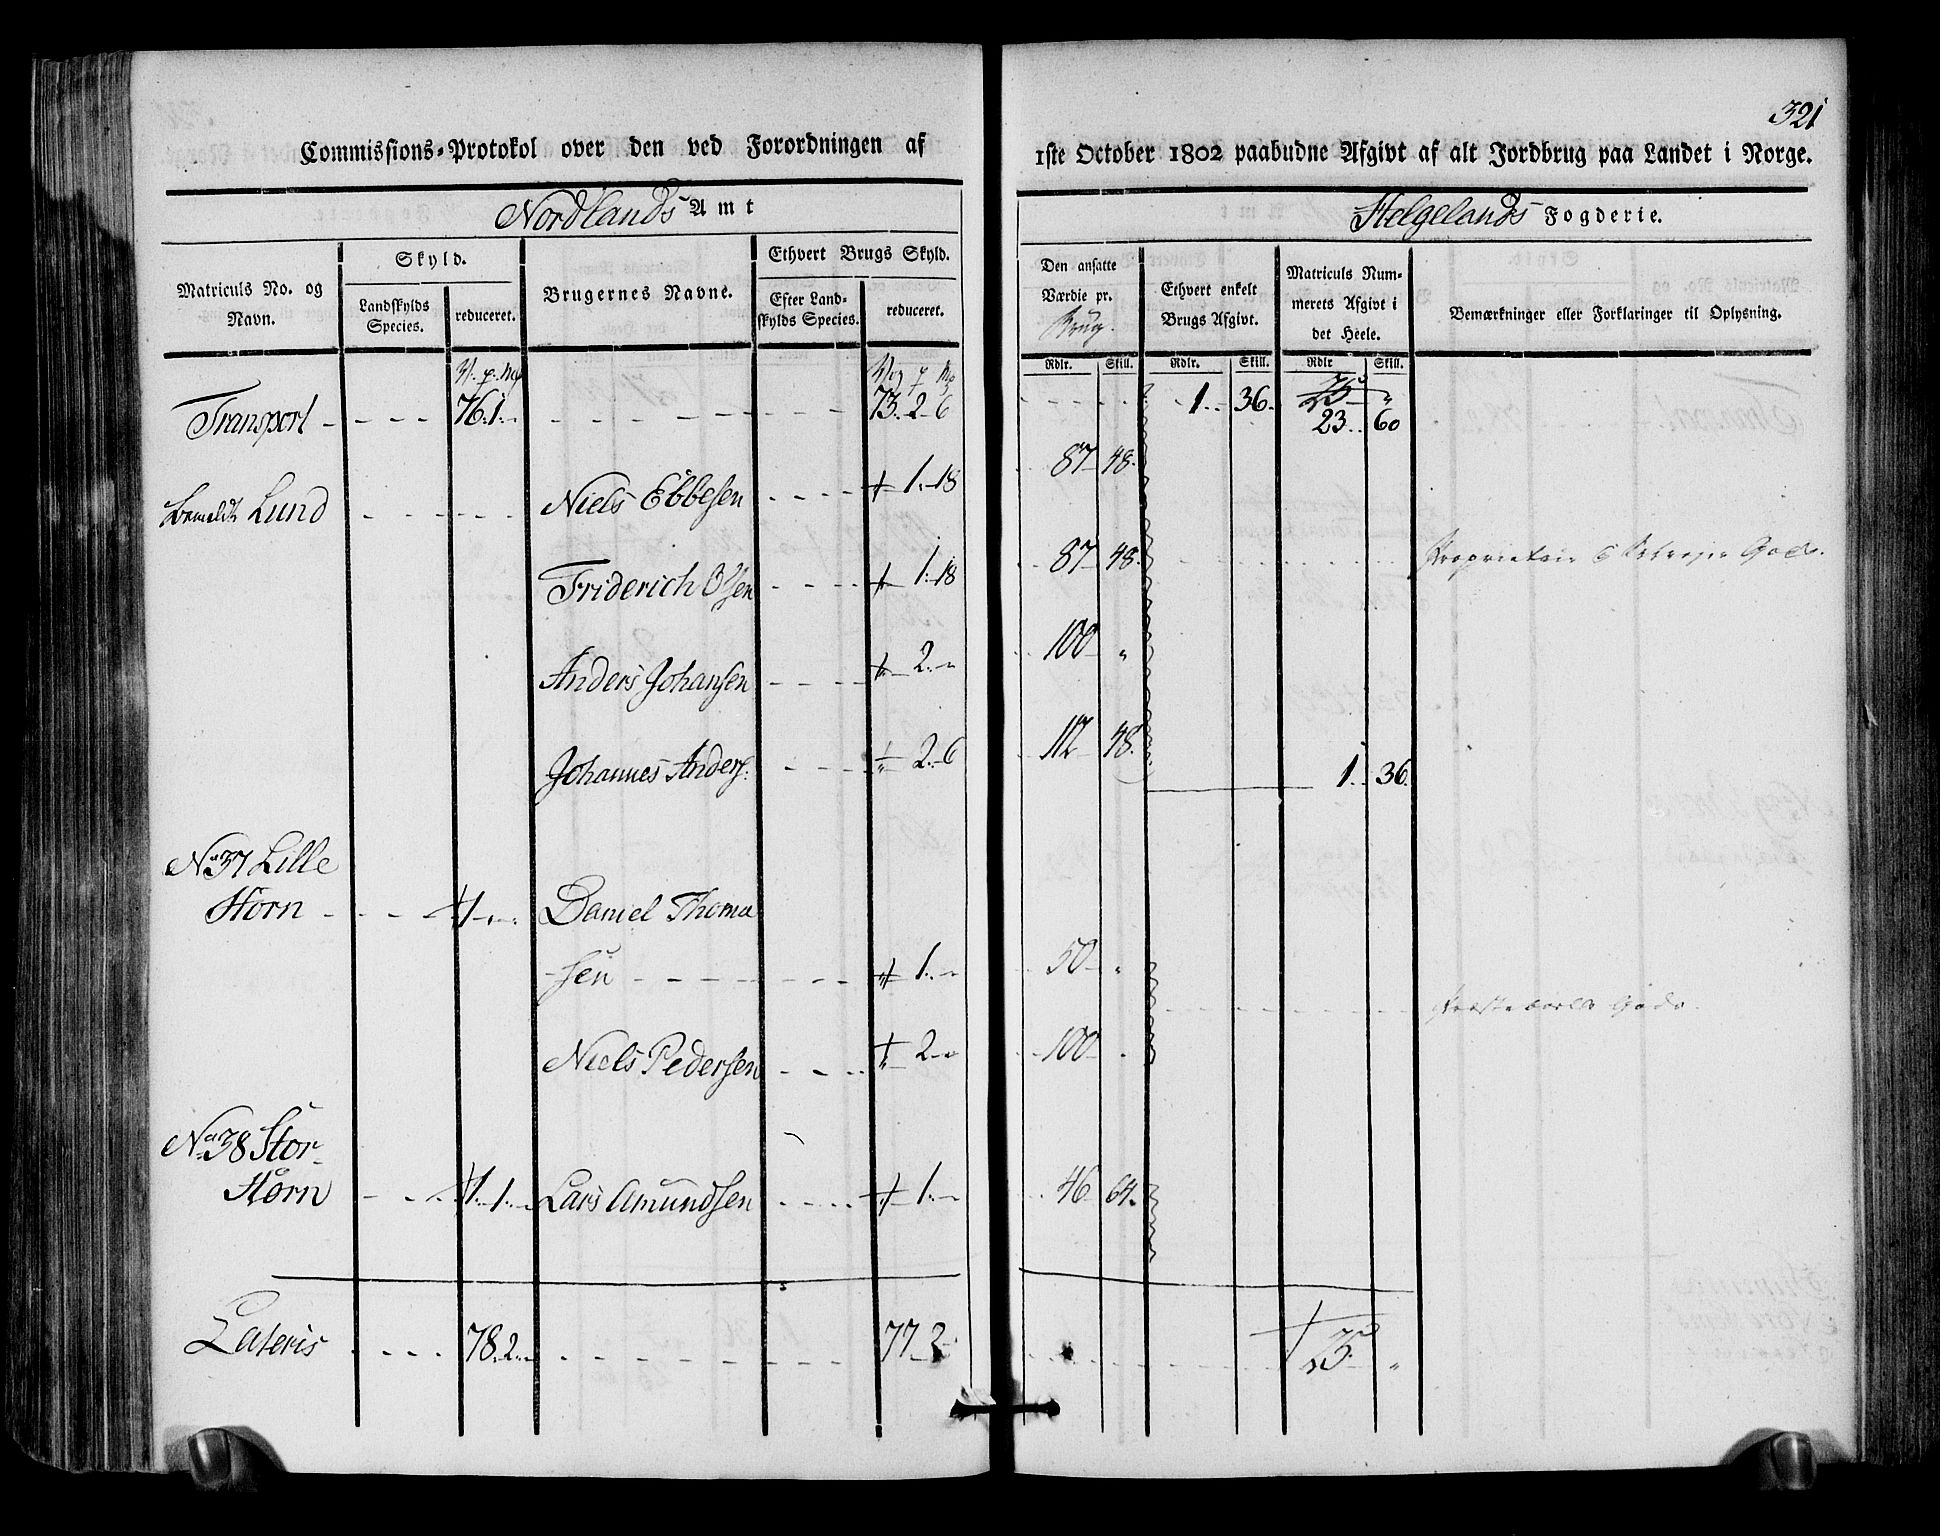 321
Commissions-Protokol over den ved Forordningen af 1ste October 1802 paabudne Afgivt af alt Jordbrug paa Landet i Norge.
Nordlands Amt Helgelands Fogderie.
Matriculs No. og Navn. Skyld. Landskylds Species. reduceret. Brugernes Navne. Ethvert Brugs Skyld. Efter Landskylds Species. reduceret. Den ansatte Værdie pr. Brug. Rdlr. Skill. Ethvert enkelt Brugs Afgivt. Rdlr. Skill. Matriculs Nummerets Afgivt i det Heele. Rdlr Skill. Bemærkninger eller Forklaringer til Oplysning.
Transport 76. 1. 73. 2 - 6 1. 36. 25 "
23. 60
Lund Niels Ebbesen 1. 18 87 48.
Friderich Olsen 1. 18 87 48. Gods.
Anders Johansen 2. " 100 "
Johannes Anders: 2. 6 112 48. 1. 36.
No 37 Lille
Horn 1 Daniel Thoma
sen 1. " 50 "
Gods.
Niels Pedersen 2. " 100 "
No 38 Stor-
Horn 1. 1. Lars Amundsen 1. " 46 64.
Lateris 78. 2. 77 2 25. "